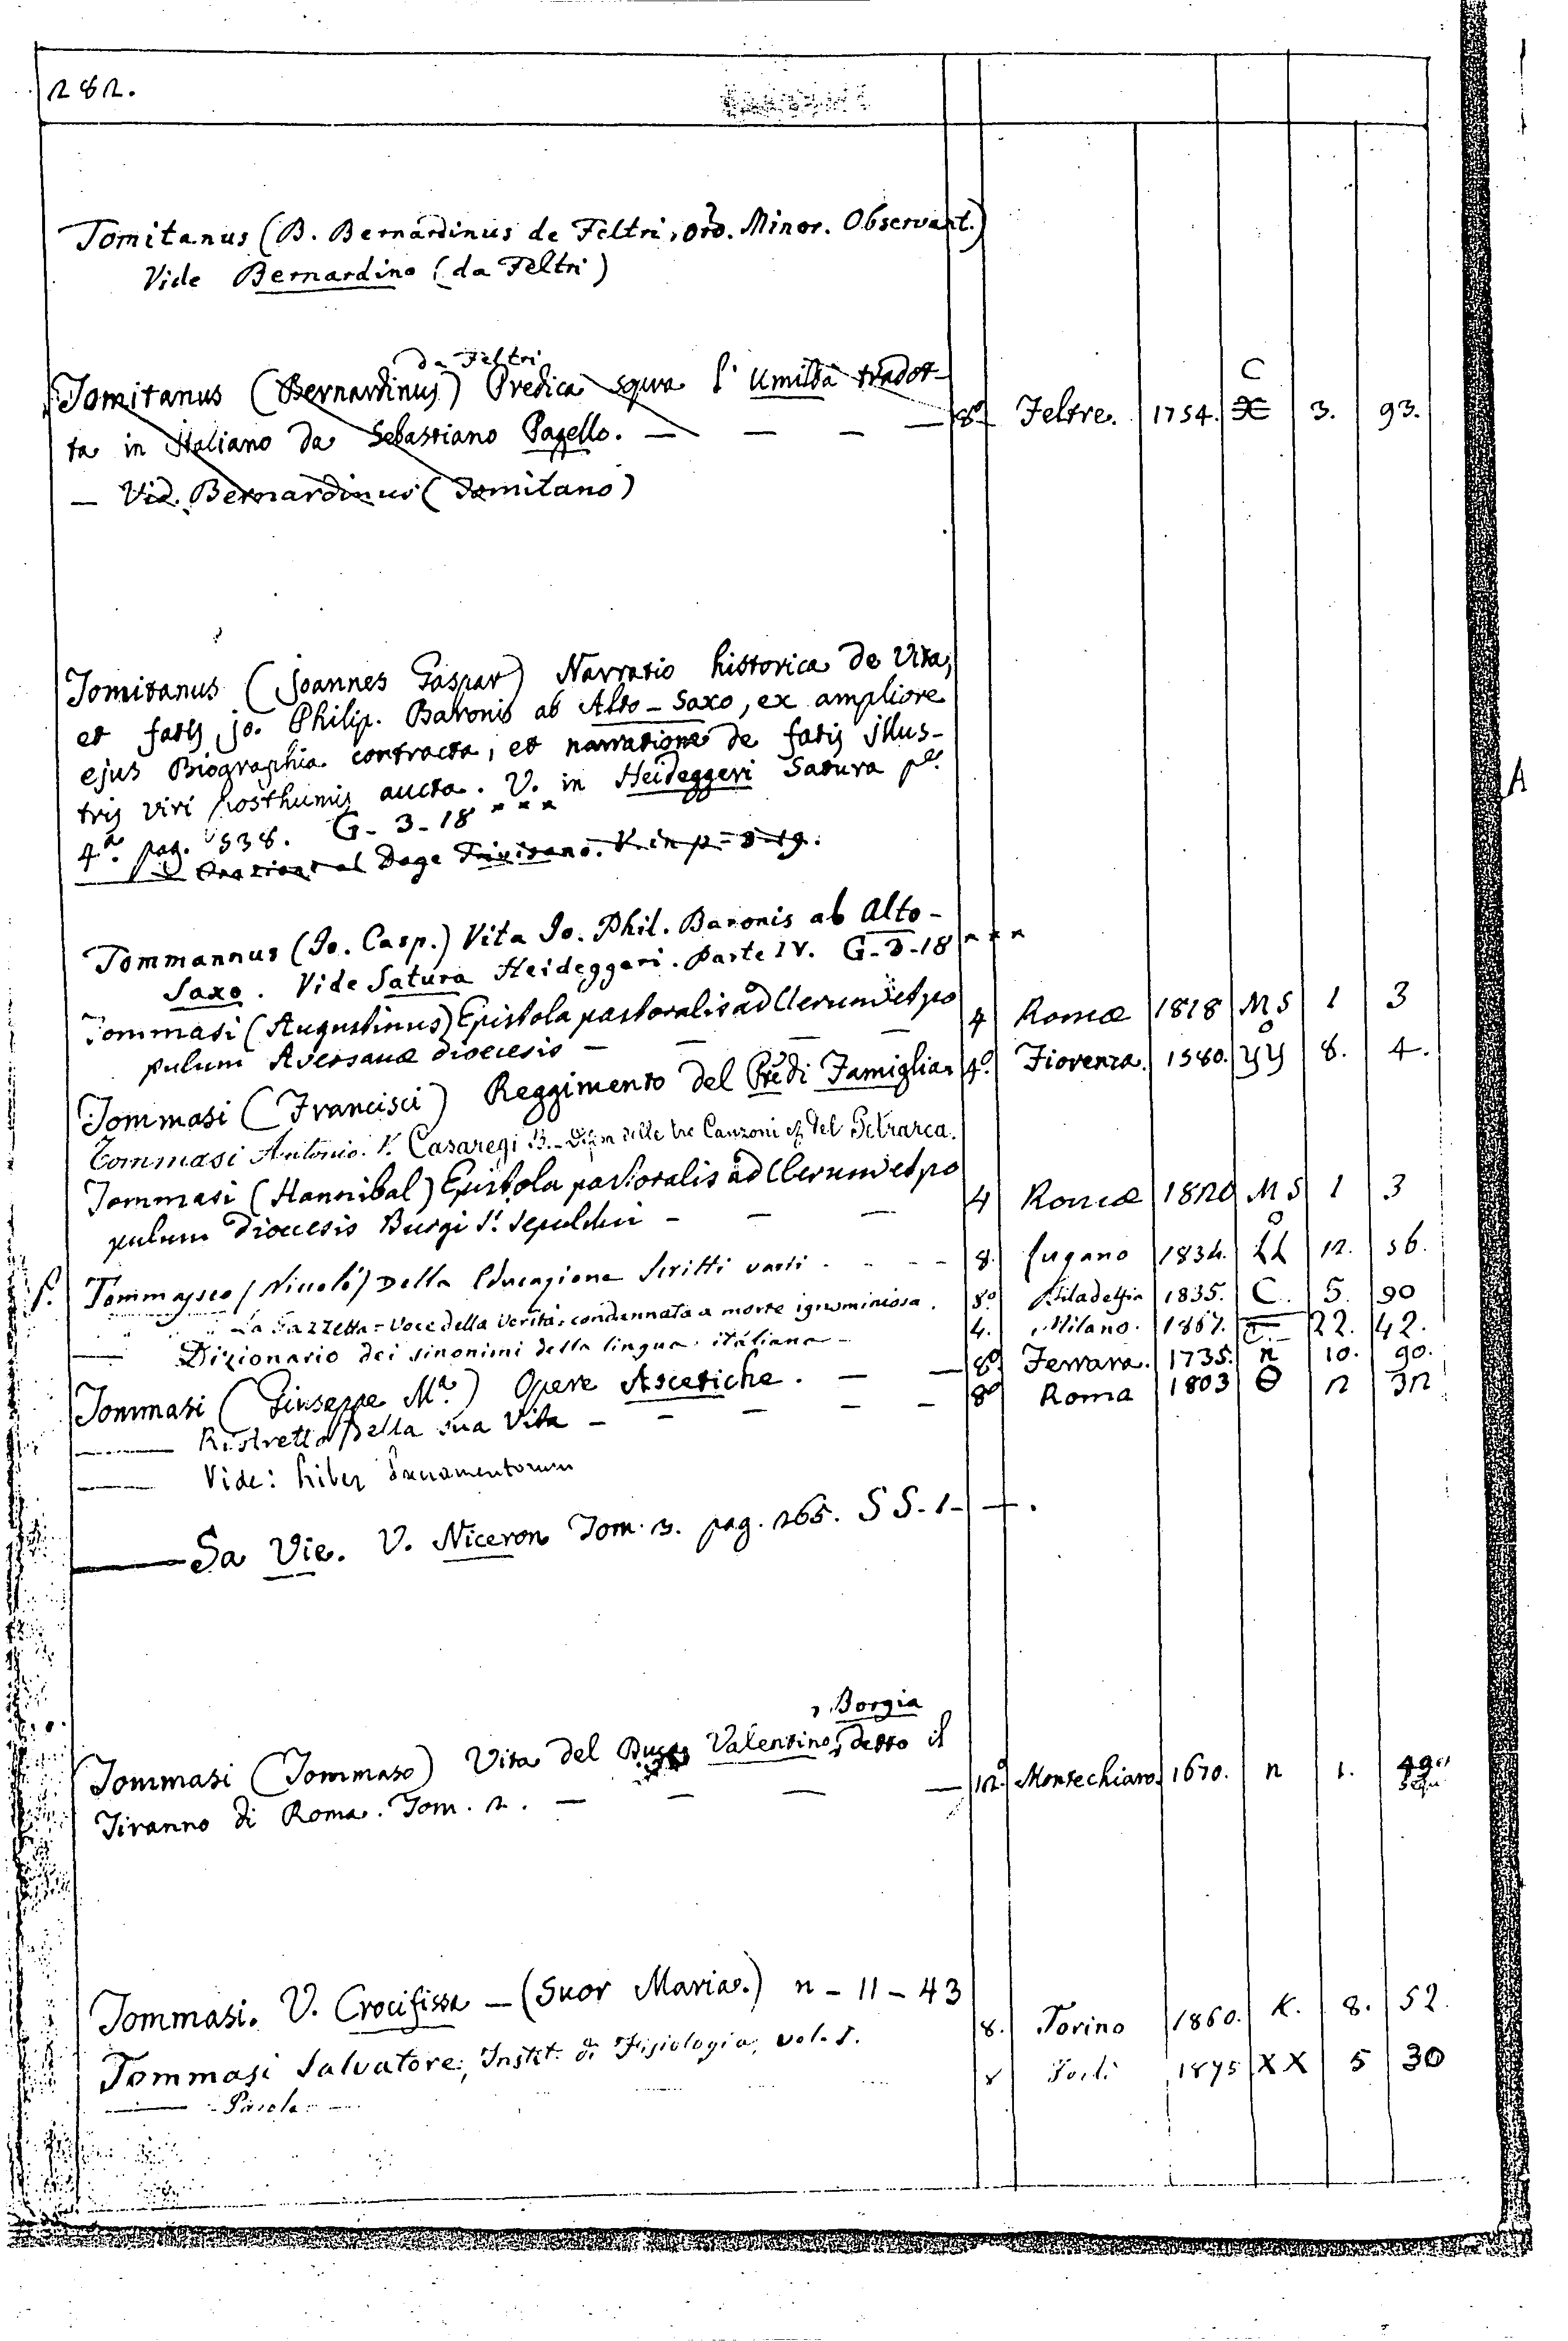 282.
Tomitanus (B. Bernardinus de Feltri, ord. Minor. Observant.)
Vide Bernardino (da Feltri)
da Feltri
Tomitanus (Bernardinus) Predica sopra l' Umiltà tradot- 8º Feltre. 1754. C 3. 93.
ta in Italiano da Sebastiano Pagello. — — — —
— Vid. Bernardinus (Tomitano)
Tomitanus (Joannes Gaspar) Narratio historica de Vita,
et fatis Jo. Philip. Baronis ab Alto-Saxo, ex ampliore
ejus Biographia contracta, et narratione de fatis illus-
tris viri posthumis aucta. V. in Heideggeri Satura pe.
4ª. pag. 538. G-3-18 * * *
Doge Trivisano. V. in
Tommannus (Jo. Casp.) Vita Jo. Phil. Baronis ab Alto-
Saxo. Vide Satura Heideggeri. Parte IV. G-3-18 * * *
Tommasi (Augustinus) Epistola pastoralis ad Clerum et po 4 Romæ 1818 MS 1 3
pulum Aversanæ dioecesis — — — —
Tommasi (Francisci) Reggimento del Pre di Famiglia 4º. Fiorenza. 1580. yy 8. 4.
Tommasi Antonio. V. Casaregi B. Difesa delle tre Canzoni &. del Petrarca.
Tommasi (Hannibal) Epistola pastoralis ad Clerum et po 4 Romæ 1820 MS 1 3
pulum Dioecesis Burgi S. Sepulchri — — —
Tommaseo (Nicolò) Della Educazione Scritti varii . - - - 8. Lugano 1834. LL 12. 56.
La Gazzetta = Voce della Verità, condannata a morte ignominiosa. 8º Filadelfia 1835. C. 5. 90
— Dizionario dei sinonimi della lingua italiana — 4. Milano. 1867. 22. 42.
Tommasi (Giuseppe Mª.) Opere Ascetiche. — — 8º Ferrara. 1735. n 10. 90.
—— Ristretto della sua Vita — — — — — 8º Roma 1803 Θ 2 32
—— Vide: Liber Sacramentorum
—— Sa Vie. V. Niceron Tom. 3. pag. 265. SS-1- +.
, Borgia
Tommasi (Tommaso) Vita del Duca Valentino, detto il 12º Montechiaro. 1670. n 1. 49
Tiranno di Roma. Tom. 2. — — — —
Tommasi. V. Crocifissa — (Suor Maria.) n - 11 - 43
Tommasi Salvatore, Instit. di Fisiologia, vol. I. 8. Torino 1860. K. 8. 52.
—— Parole 8 Forlì 1875 XX 5 30